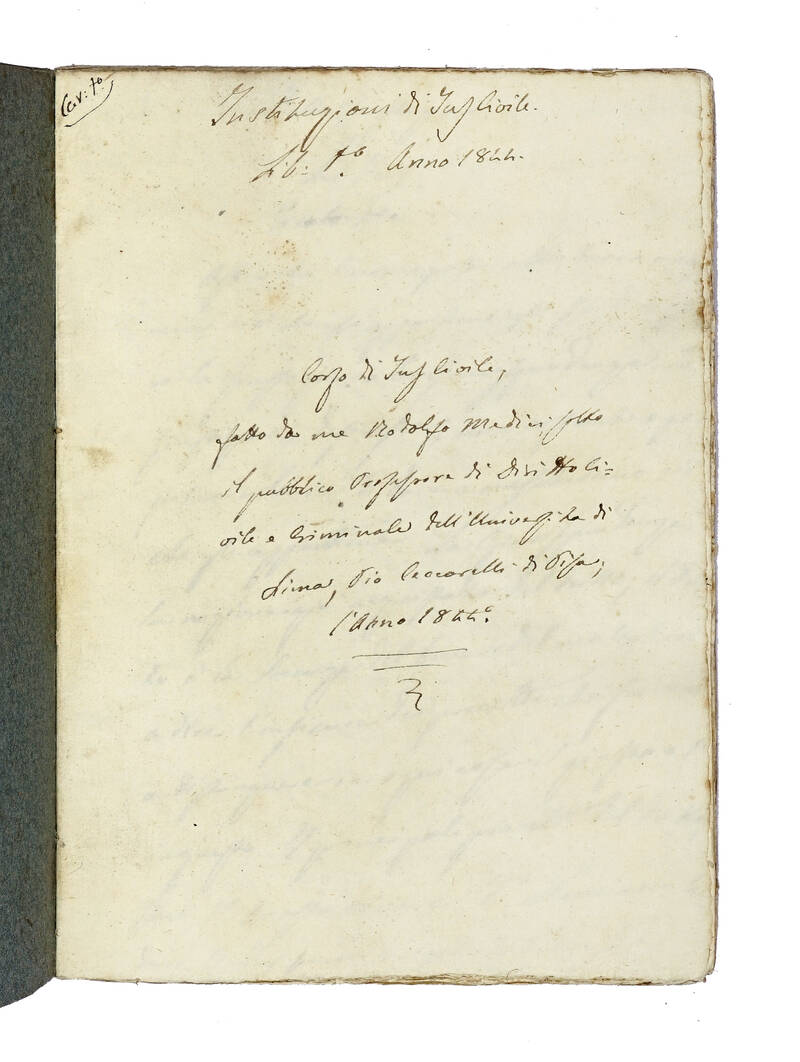 Instituzioni di Jus Civile.
Lib: 1.º Anno 1844.
Corso di Jus Civile,
fatto da me Rodolfo Medici sotto
il pubblico Professore di Diritto Ci=
vile e Criminale dell'Università di
Siena, Pio Ceccarelli di Pisa,
l'Anno 1844.